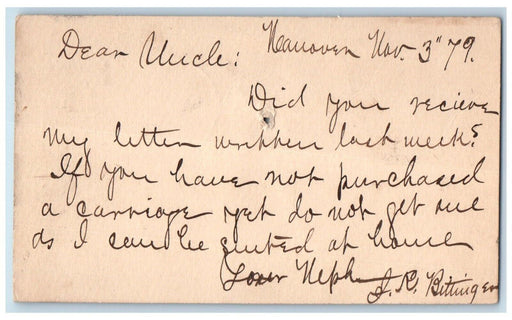 Dear Uncle: Hanover Nov. 3" 79.
Did you recieve
my letter written last week?
If you have not purchased
a carriage yet do not get me
as I can be suited at home
Your Neph
J. R. Bittinger